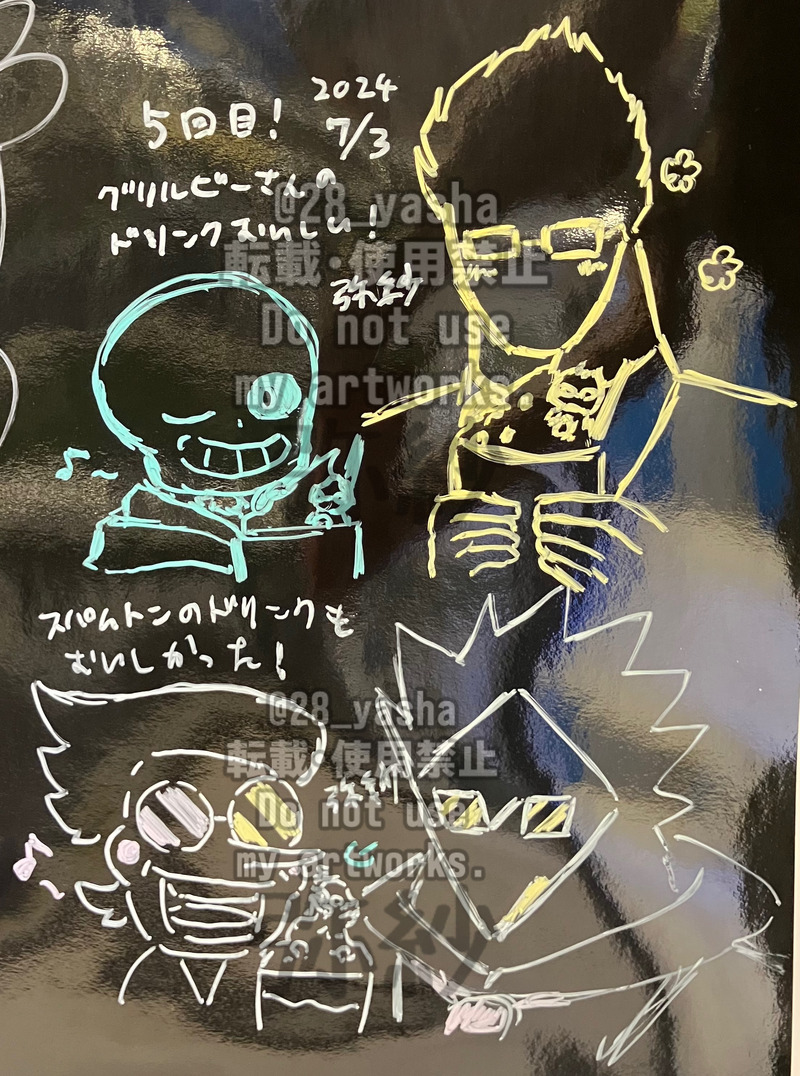 2024
5回目! 7/3
グリルビーさんの
ドリンクおいしい!
弥紗
@28_yasha
転載・使用禁止
Do not use
my artworks.
弥紗
スパムトンのドリンクも
おいしかった!
弥紗
@28_yasha
転載・使用禁止
Do not use
my artworks.
弥紗